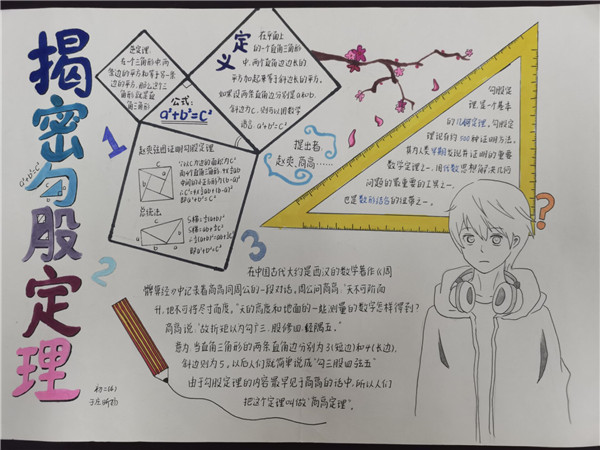 揭密勾股定理
逆定理:
在一个三角形中,两
条边的平方和等于另一条
边的平方,那么这个三
角形就是直
角三角形
定义
在平面上
的一个直角三角形
中,两个直角边边长的
平方加起来等于斜边长的平方。
如果设两条直角边分别是a和b,
斜边为c,则可以用数学
语言:a²+b²=c²
公式:
a²+b²=C²
1
赵爽弦图证明勾股定理
总统法
提出者
赵爽、商高……
勾股定
理是一个基本
的几何定理,勾股定
理现在约有500种证明方法,
是人类早期发现并证明的重要
数学定理之一,用代数思想解决几何
问题的最重要的工具之一,
也是数形结合的纽带之一。
a²+b²=c²
2
3
?
在中国古代大约是西汉的数学著作《周
髀算经》中记录着商高同周公的一段对话。周公问商高:“天不可阶而
升,地不可得尺寸而度。”天的高度和地面的一些测量的数字怎样得到?
商高说:“故折矩以为勾广三,股修四,径隅五。”
意为:当直角三角形的两条直角边分别为3(短边)和4(长边),
斜边则为5。以后人们就简单说成“勾三股四弦五”
由于勾股定理的内容最早见于商高的话中,所以人们
把这个定理叫做“商高定理”。